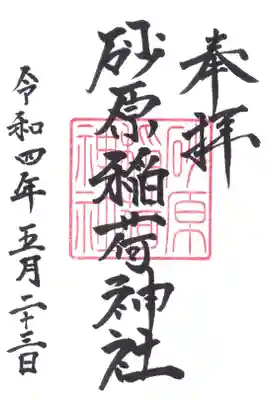 奉拝
砂原稲荷神社
砂原稲荷神社
令和四年五月二十三日